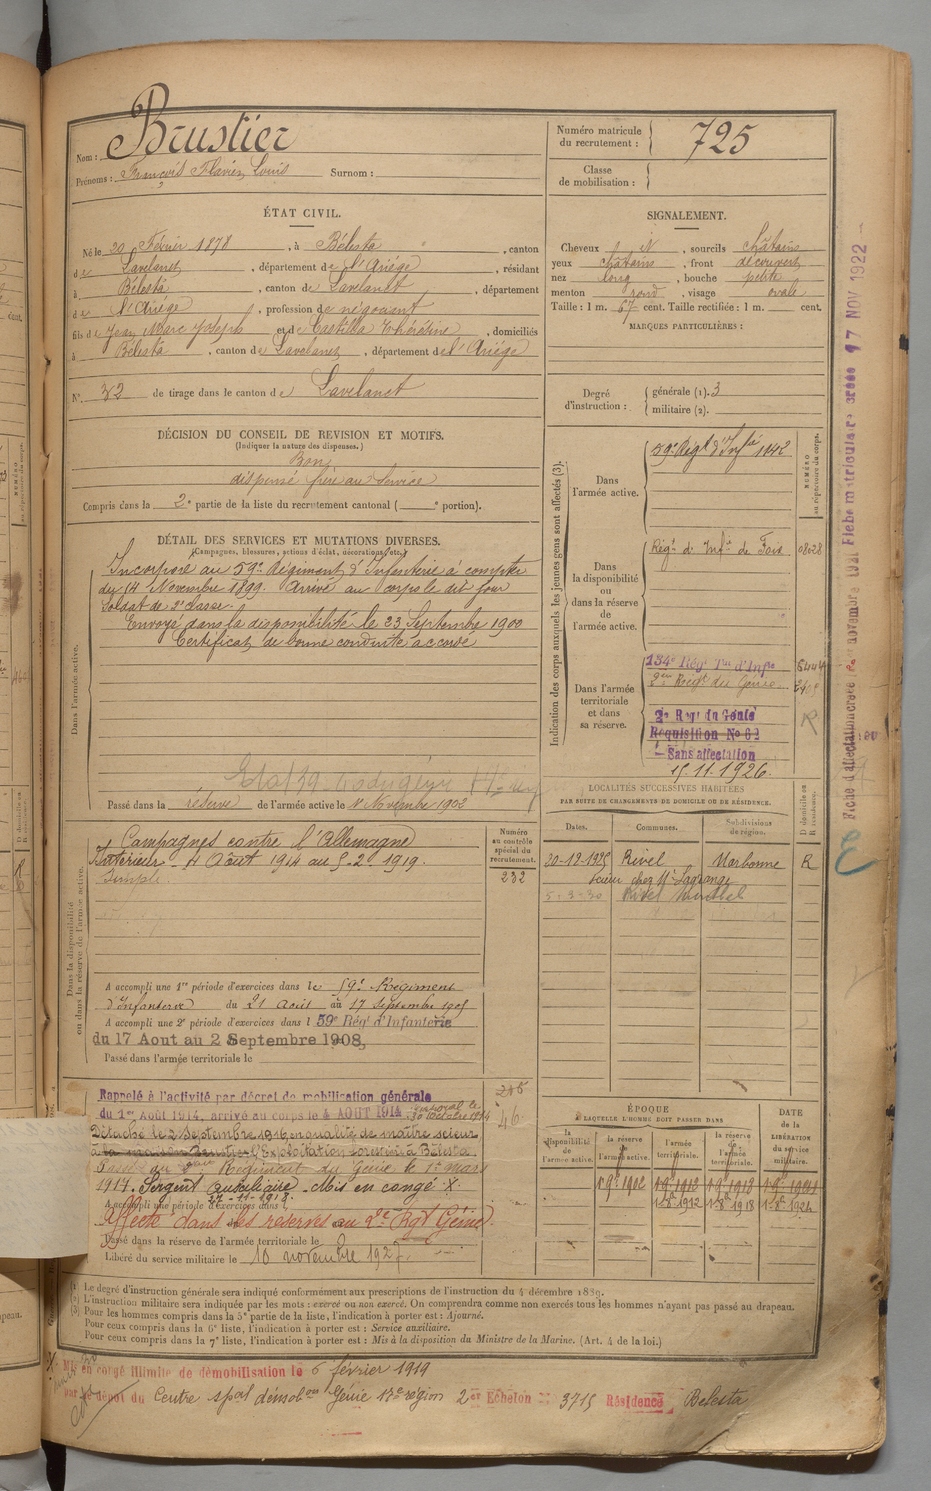 Nom : Brustier
Prénoms : François Flavien Louis Surnom :
Numéro matricule du recrutement : 725
Classe de mobilisation :
ÉTAT CIVIL.
Né le 20 Février 1878, à Bélesta, canton
de Lavelanet, département de l'Ariége, résidant
à Bélesta, canton de Lavelanet, département
de l'Ariége, profession de négociant
fils de Jean Marc Joseph et de Castilla Thérésine, domiciliés
à Bélesta, canton de Lavelanet, département de l'Ariége
N° 32 de tirage dans le canton de Lavelanet
SIGNALEMENT.
Cheveux N, sourcils châtains
yeux châtains, front découvert
nez long, bouche petite
menton rond, visage ovale
Taille : 1 m. 67 cent. Taille rectifiée : 1 m. cent.
MARQUES PARTICULIÈRES :
Degré d'instruction : générale (1). 3
militaire (2).
DÉCISION DU CONSEIL DE REVISION ET MOTIFS.
(Indiquer la nature des dispenses.)
Bon
dispensé frère au service
Compris dans la 2e partie de la liste du recrutement cantonal ( e portion).
DÉTAIL DES SERVICES ET MUTATIONS DIVERSES.
(Campagnes, blessures, actions d'éclat, décorations, etc.)
Dans l'armée active.
Incorporé au 59e Régiment d'Infanterie à compter
du 14 Novembre 1899. Arrivé au corps le dit jour
Soldat de 2e classe.
Envoyé dans la disponibilité le 23 Septembre 1900
Certificat de bonne conduite accordé
Passé dans la réserve de l'armée active le 1 Novembre 1902
Indication des corps auxquels les jeunes gens sont affectés (3).
NUMÉRO au répertoire du corps.
Dans l'armée active.
59e Régt d'Infie 1042
Dans la disponibilité ou dans la réserve de l'armée active.
Régt d'Infie de Foix 08028
Dans l'armée territoriale et dans sa réserve.
134e Rég Tal d'Infie
2e Régt du Génie
2e Regt du Génie
Réquisition No 62
Sans affectation
15.11.1926.
R
LOCALITÉS SUCCESSIVES HABITÉES
PAR SUITE DE CHANGEMENTS DE DOMICILE OU DE RÉSIDENCE.
Dates. Communes. Subdivisions de région. D domicile ou R résidence.
20-12-1925 Rivel Narbonne R
scieur chez Mr Lagrange
5-3-30 Rivel
Dans la disponibilité ou dans la réserve de l'armée active.
Numéro au contrôle spécial du recrutement.
232
Campagnes contre l'Allemagne
Intérieur 4 Août 1914 au 5-2-1919.
Simple
A accompli une 1re période d'exercices dans le 59e Régiment
d'Infanterie du 21 Août au 17 Septembre 1905
A accompli une 2e période d'exercices dans l 59e Régt d'Infanterie
du 17 Aout au 2 Septembre 1908,
Passé dans l'armée territoriale le
Rappelé à l'activité par décret de mobilisation générale
du 1er Août 1914, arrivé au corps le 4 AOUT 1914 Caporal le 30 Octobre 1914
Détaché le 2 Septembre 1916 en qualité de maître scieur
à la maison Brustier Exploitation forestière à Bélesta
Passé au 2e Régiment du Génie le 1er Mars
1917. Sergent auxiliaire. Mis en congé X.
27-11-1918.
A accompli une période d'exercices dans l
Affecté dans les réserves au 2e Rgt Génie.
Passé dans la réserve de l'armée territoriale le
Libéré du service militaire le 10 novembre 1927
46
ÉPOQUE
A LAQUELLE L'HOMME DOIT PASSER DANS
la disponibilité de l'armée active. la réserve de l'armée active. l'armée territoriale. la réserve de l'armée territoriale. DATE de la LIBÉRATION du service militaire.
1 9bre 1902 1 9bre 1912 1 9bre 1918 1 9bre 1924
1-8bre 1912 1-8bre 1918 1-8bre 1924
(1) Le degré d'instruction générale sera indiqué conformément aux prescriptions de l'instruction du 4 décembre 1889.
(2) L'instruction militaire sera indiquée par les mots : exercé ou non exercé. On comprendra comme non exercés tous les hommes n'ayant pas passé au drapeau.
(3) Pour les hommes compris dans la 5e partie de la liste, l'indication à porter est : Ajourné.
Pour ceux compris dans la 6e liste, l'indication à porter est : Service auxiliaire.
Pour ceux compris dans la 7e liste, l'indication à porter est : Mis à la disposition du Ministre de la Marine. (Art. 4 de la loi.)
X Mis en congé illimité de démobilisation le 6 février 1919
par dépôt du Centre spal démobon Génie 17e région 2er Echelon 3715 Résidence Belesta
Fiche matriculaire créée 17 NOV 1922